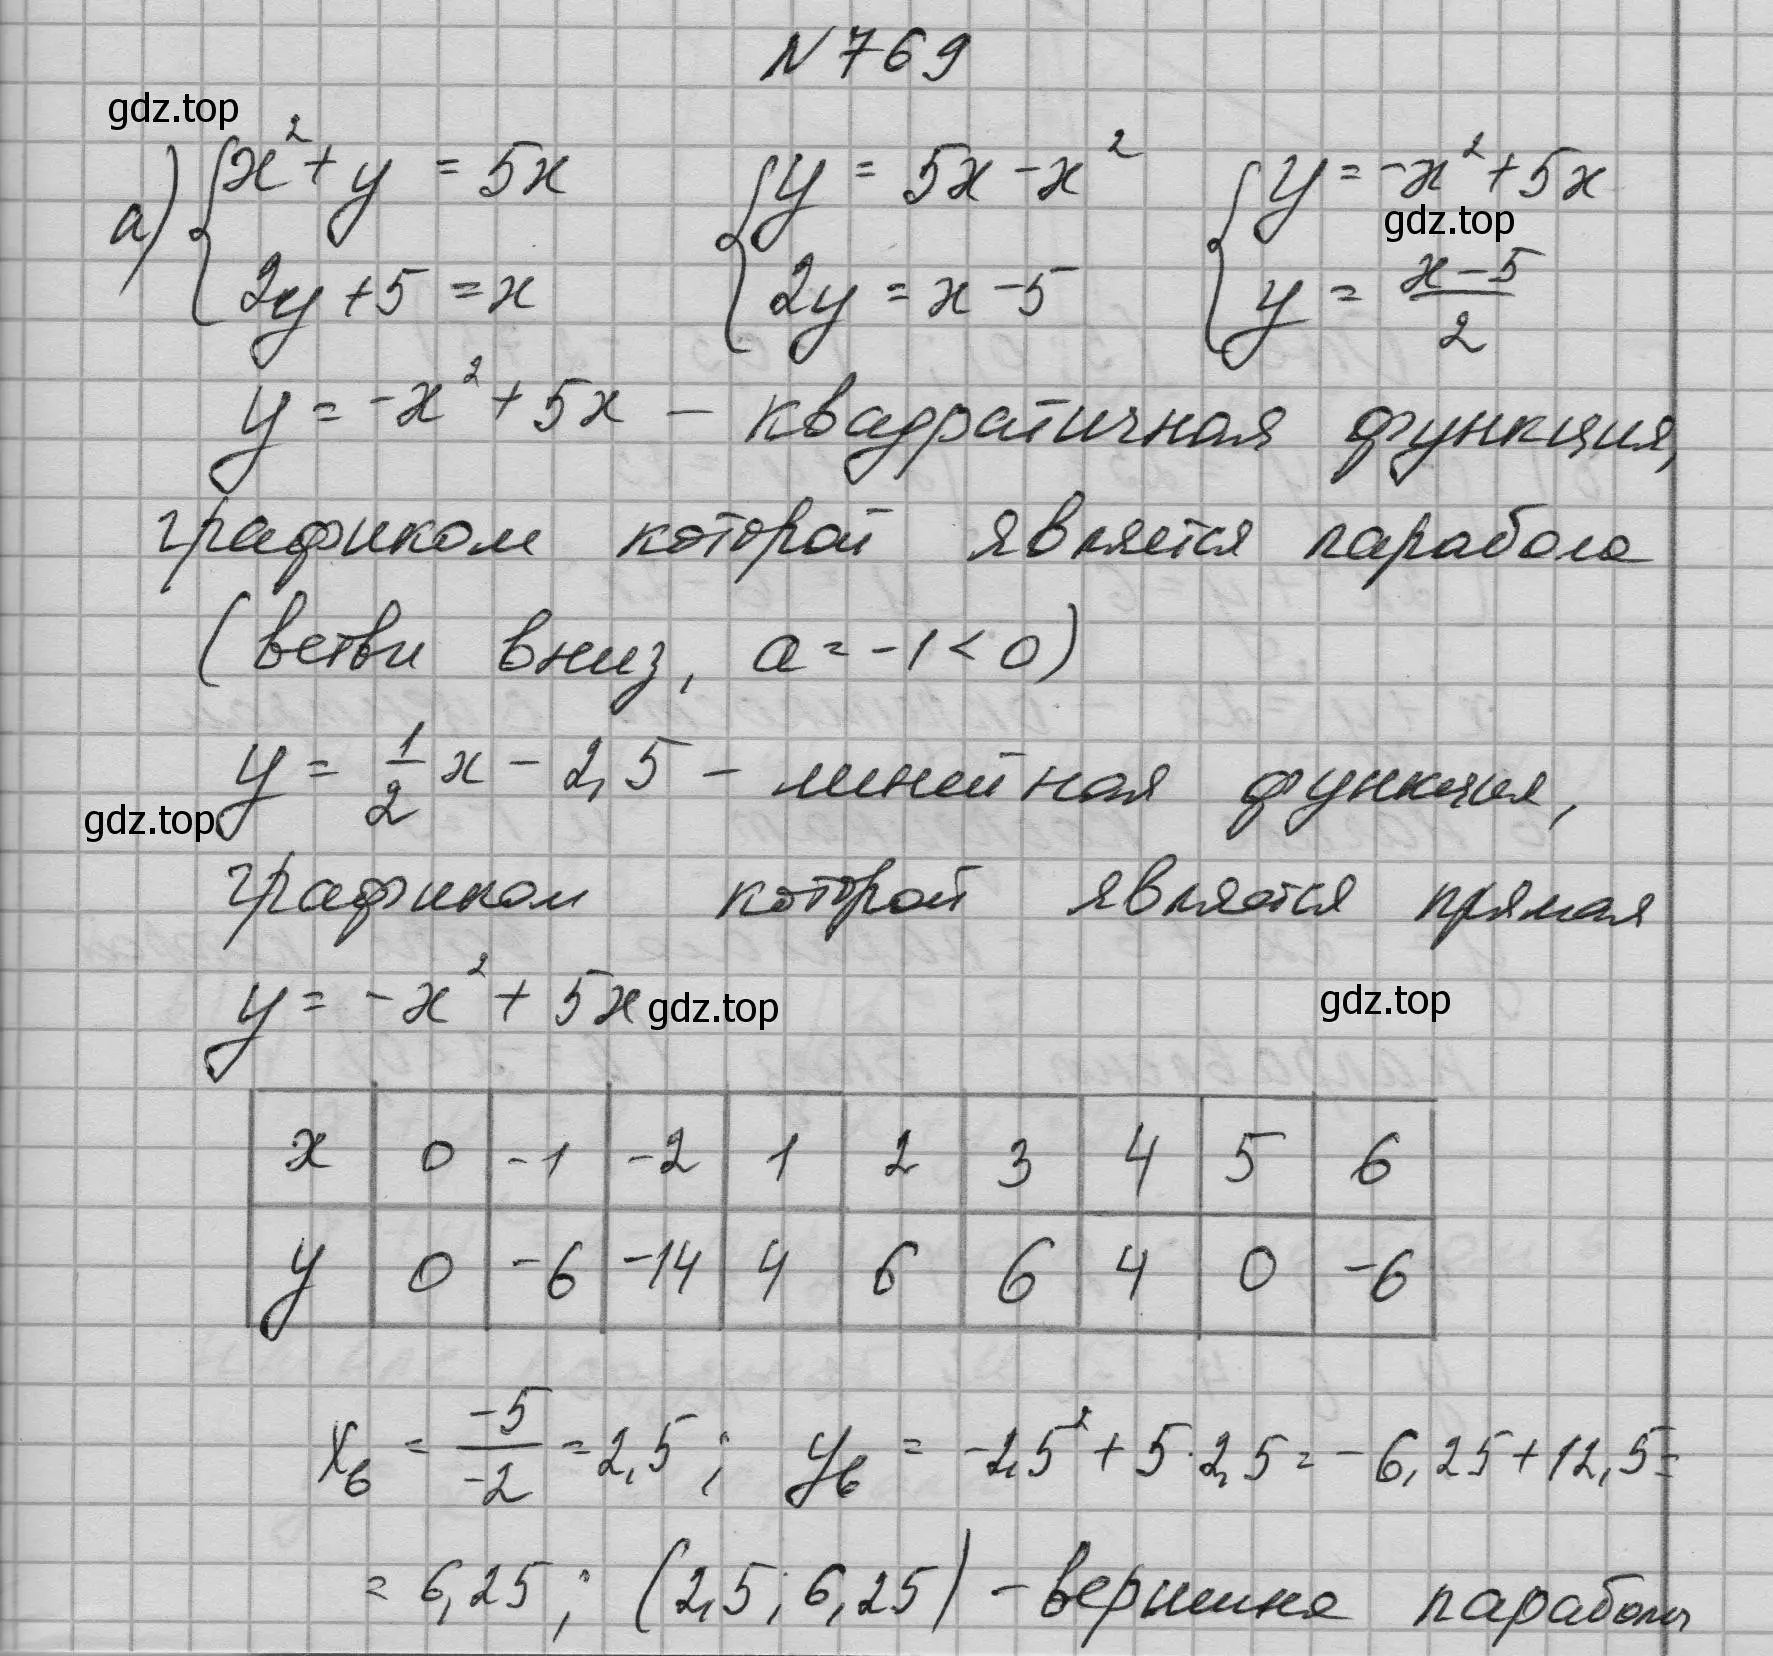 N 769
gdz.top
а) { x² + y = 5x { y = 5x - x² { y = -x² + 5x
gdz.top
2y + 5 = x 2y = x - 5 y = (x - 5)/2
y = -x² + 5x - квадратичная функция,
графиком которой является парабола
(ветви вниз, a = -1 < 0)
y = 1/2 x - 2,5 - линейная функция,
gdz.top
графиком которой является прямая
y = -x² + 5x
gdz.top
gdz.top
x 0 -1 -2 1 2 3 4 5 6
y 0 -6 -14 4 6 6 4 0 -6
x_в = -5/-2 = 2,5; y_в = -2,5² + 5·2,5 = -6,25 + 12,5 =
= 6,25; (2,5; 6,25) - вершина параболы